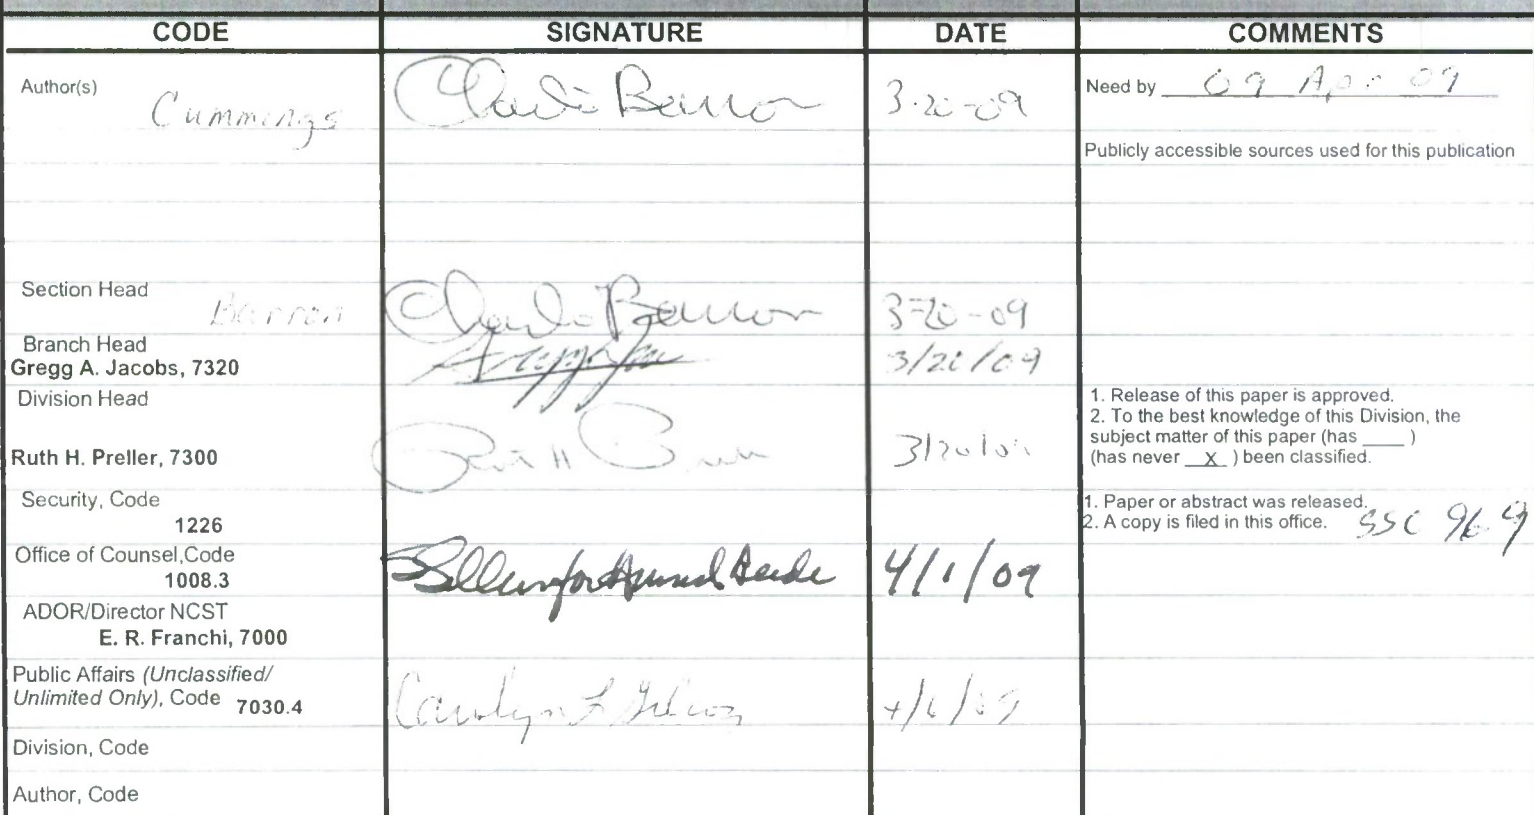 CODE SIGNATURE DATE COMMENTS
Author(s) Cummings Charlie Barron 3-20-09 Need by 09 Apr 09
Publicly accessible sources used for this publication
Section Head Barron Charlie Barron 3-20-09
Branch Head
Gregg A. Jacobs, 7320 3/20/09
Division Head
1. Release of this paper is approved.
2. To the best knowledge of this Division, the
subject matter of this paper (has ____ )
(has never X ) been classified.
Ruth H. Preller, 7300 Ruth H 3/20/09
Security, Code
1226
1. Paper or abstract was released.
2. A copy is filed in this office. SSC
Office of Counsel,Code
1008.3 4/1/09
ADOR/Director NCST
E. R. Franchi, 7000
Public Affairs (Unclassified/
Unlimited Only), Code 7030.4 Carolyn
Division, Code
Author, Code